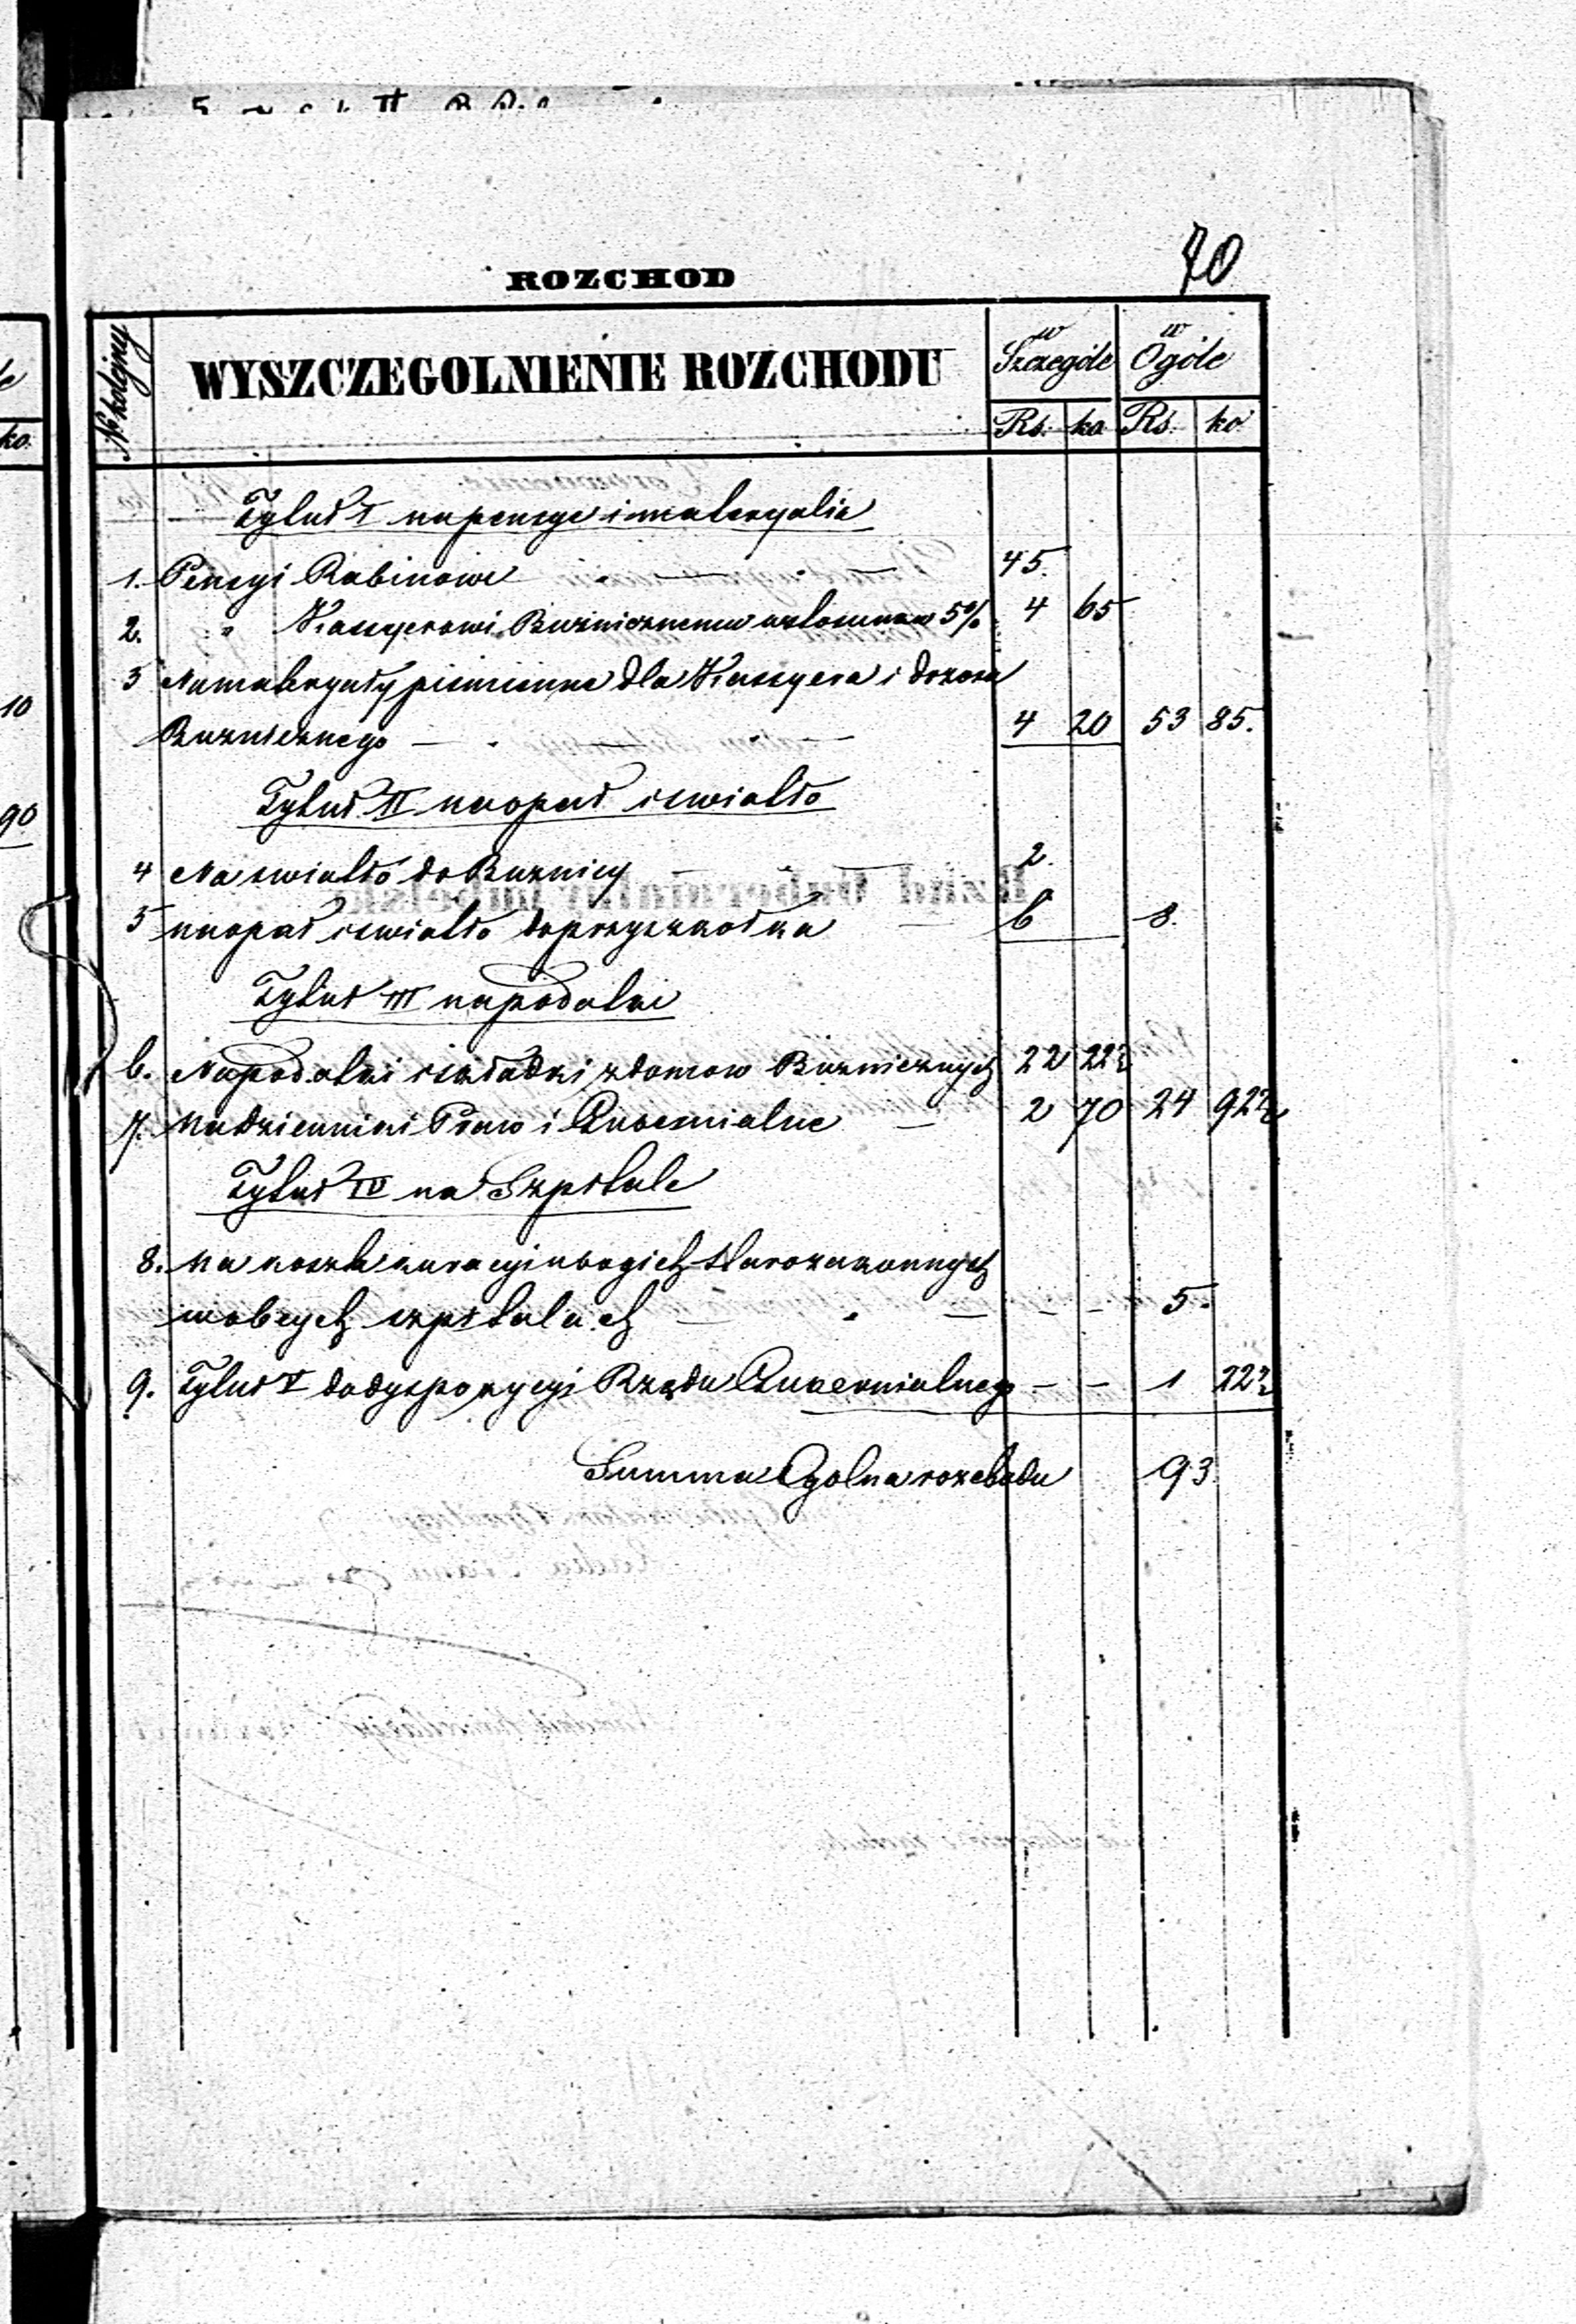 70
ROZCHOD
№ kolejny WYSZCZEGOLNIENIE ROZCHODU w Szczególe w Ogóle
Rs. ko Rs. ko
Tytuł I na pensye i materyalia
1. Pensyi Rabinowi 45.
2. " Kassyerowi Bużnicznemu w stosunku 5% 4 65
3 Na materyały piśmienne dla Kassyera i dozoru
Bużnicznego 4 20 53 85.
Tytuł II na opał i swiatło
4 Na swiatło do Bużnicy 2.
5 na opał i swiatło do przyszkółka 6 8.
Tytuł III na podatki
6. Na podatki i składki z domow Bużnicznych 22 22½
7. Na dzienniki Praw i Gubernialne 2 70 24 92½
Tytuł IV na Szpitale
8. Na koszta kuracyi ubogich starozakonnych
w obcych szpitalach - - 5.
9. Tytuł V do dyspozycyi Rządu Gubernialnego - - 1 22½
Summa Ogolna rozchodu 93
ko.
10
90